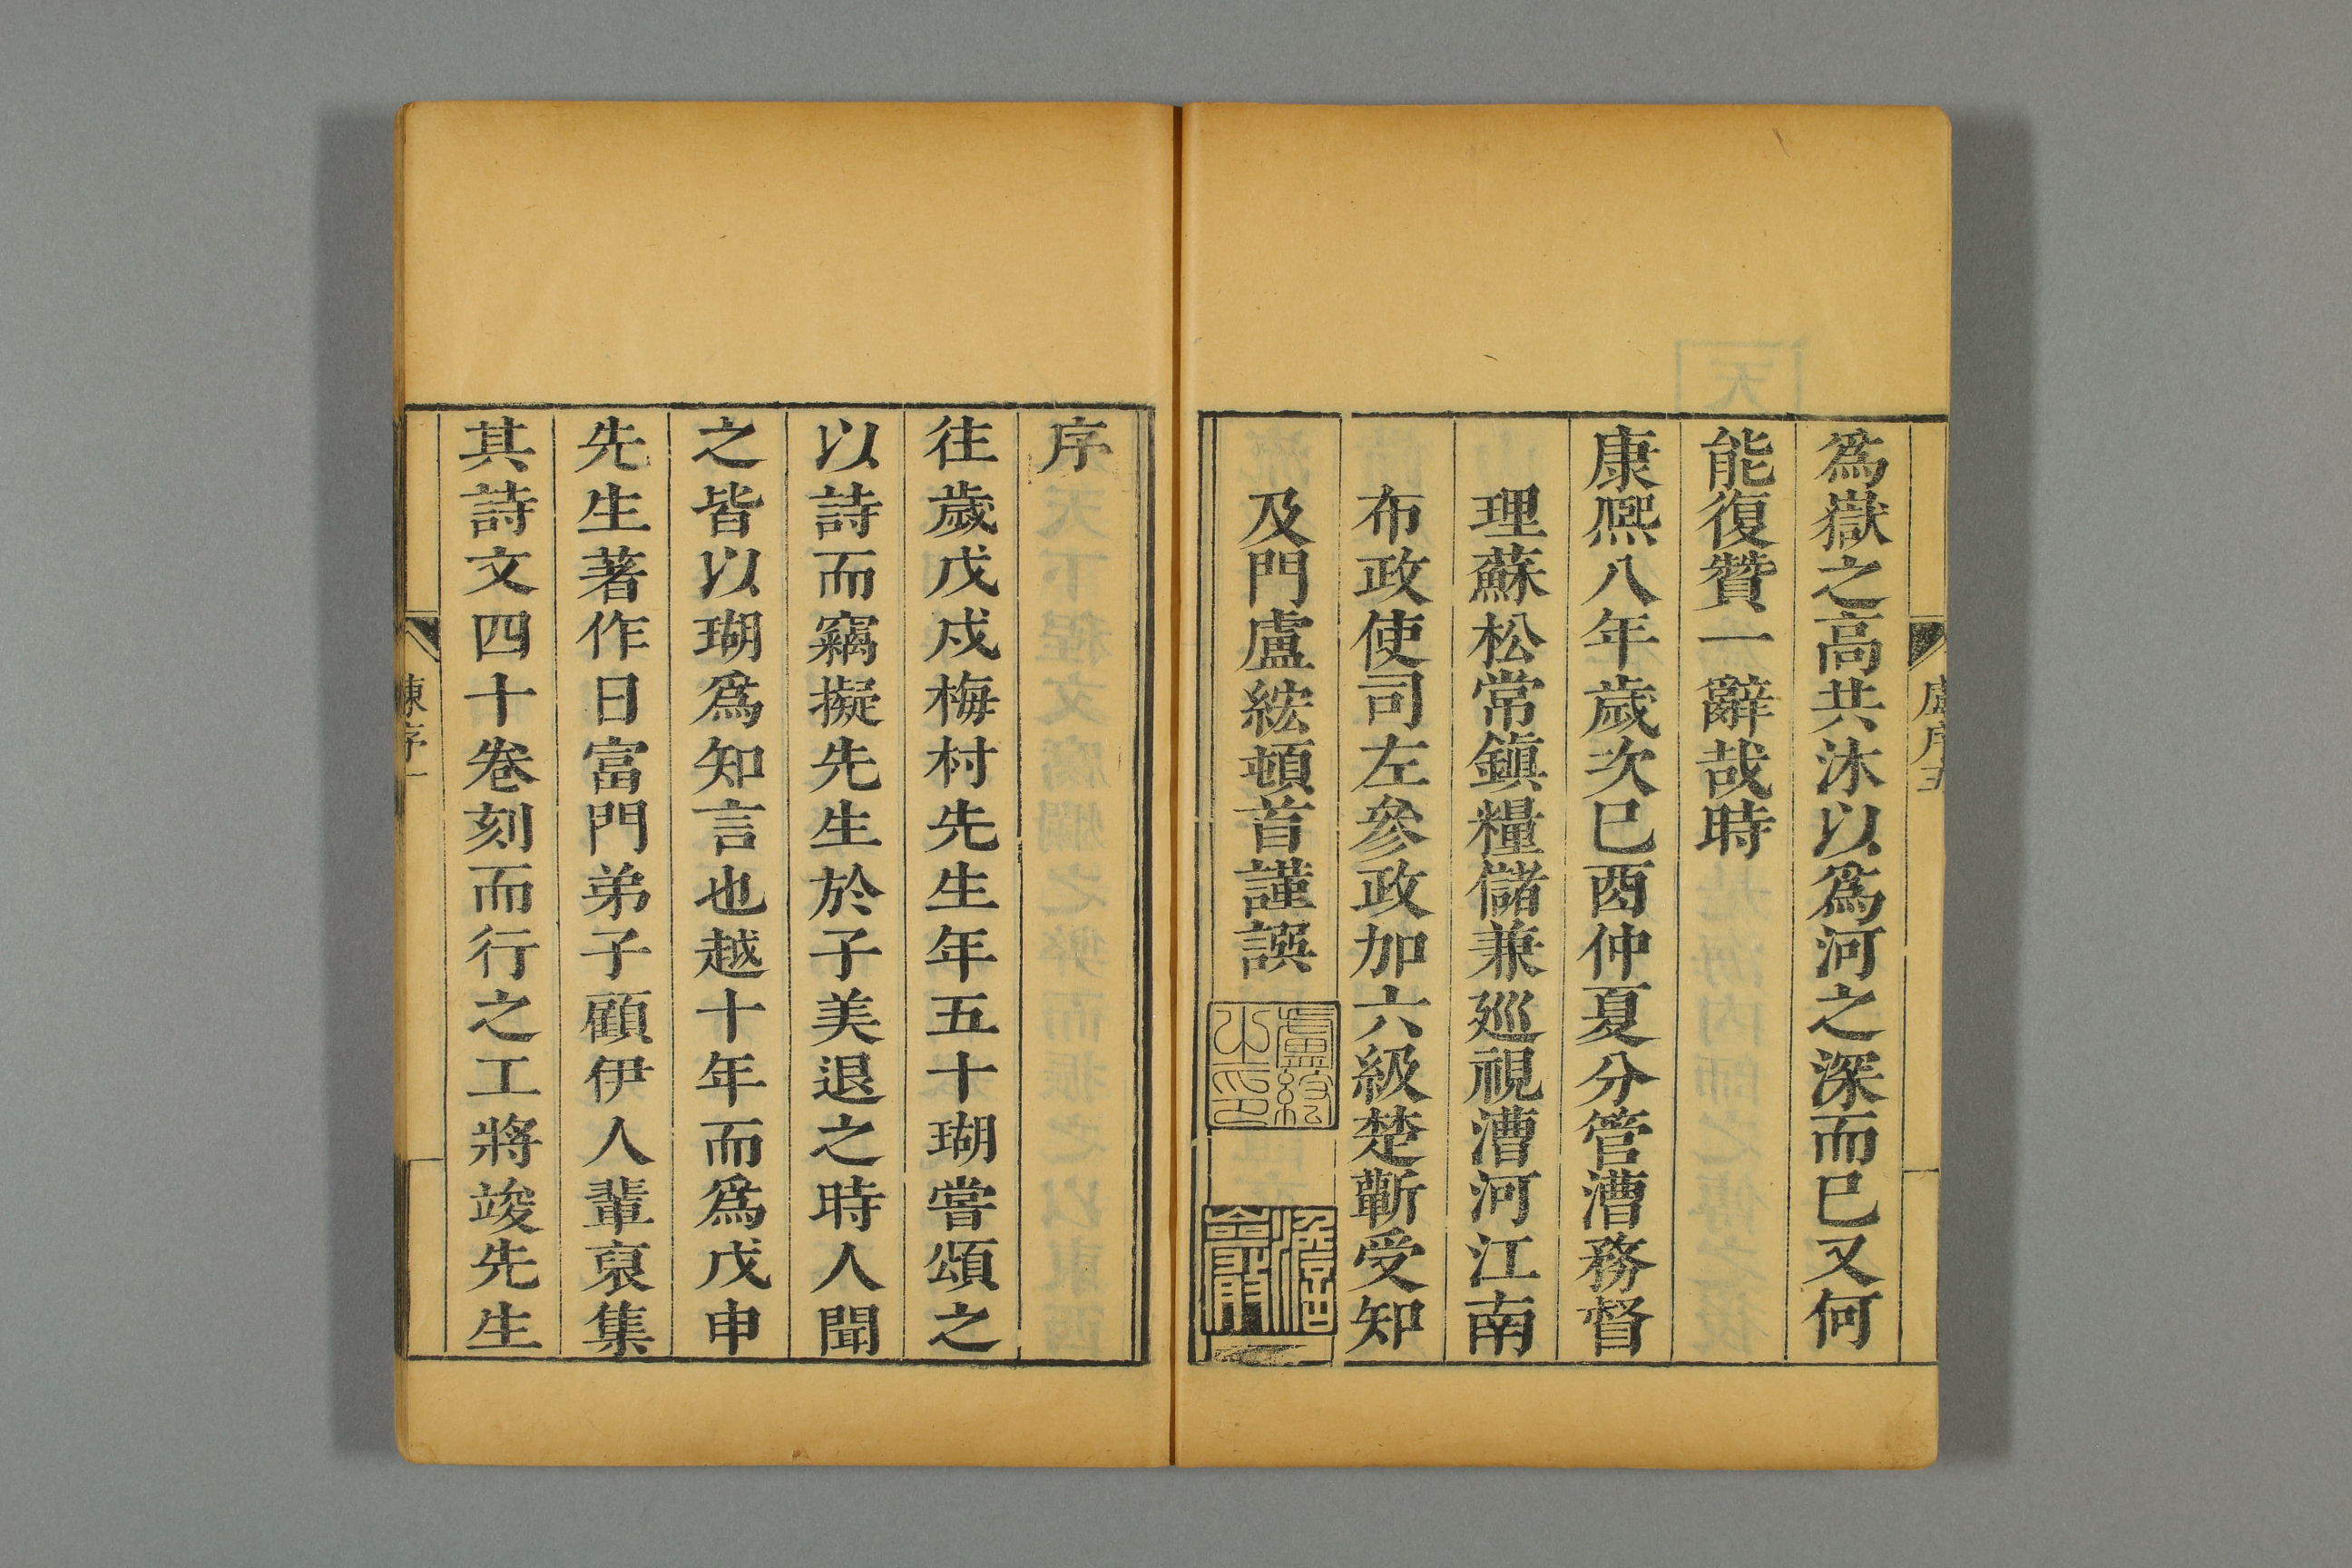 爲嶽之高共沐以爲河之深而已又何
能復贊一辭哉時
康熙八年歲次己酉仲夏分管漕務督
理蘇松常鎮糧儲兼巡視漕河江南
布政使司左參政加六級楚蘄受知
及門盧綋頓首謹譔
盧綋之印
盧序五
序
往歲戊戍梅村先生年五十瑚嘗頌之
以詩而竊擬先生於子美退之時人聞
之皆以瑚爲知言也越十年而爲戊申
先生著作日富門弟子顧伊人輩裒集
其詩文四十卷刻而行之工將竣先生
陳序一